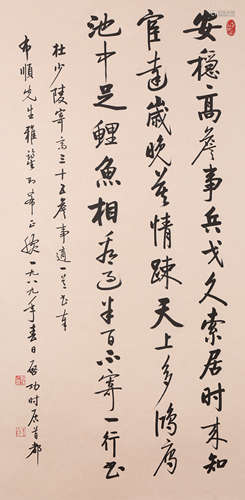 安穩高詹事兵戈久索居时来知
宦達歲晚莫情踈天上多鴻雁
池中足鯉魚相看過半百不寄一行书
杜少陵寄高三十五詹事適一首书奉
布順先生雅鑒 正 一九八九年春日启功时居首都